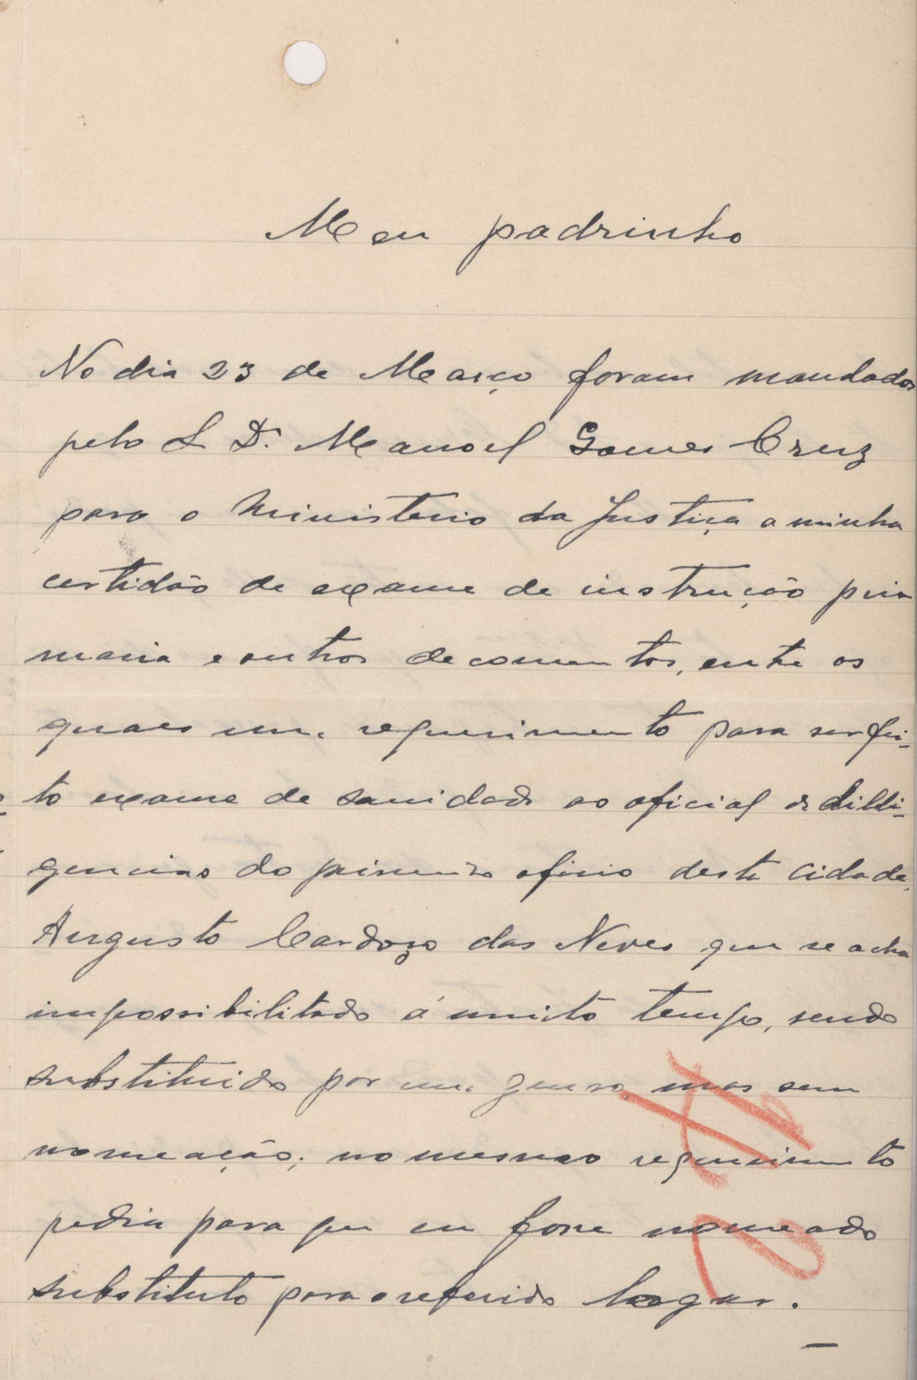 Meu padrinho
No dia 23 de Março foram mandados
pelo S. Dr. Manoel Gomes Cruz
para o Ministerio da Justiça a minha
certidão de exame de instrução pri
maria e outros decomentos, entre os
quaes um requerimento para ser fei-
to exame de sanidade ao oficial de dilli-
gencias do primeiro oficio desta cidade,
Augusto Cardozo das Neves que se acha
impossibilitado á muito tempo, sendo
substituido por um genro, mas sem
nomeação; no mesmo requerimento
pedia para que eu fosse nomeado
substituto para o referido logar.